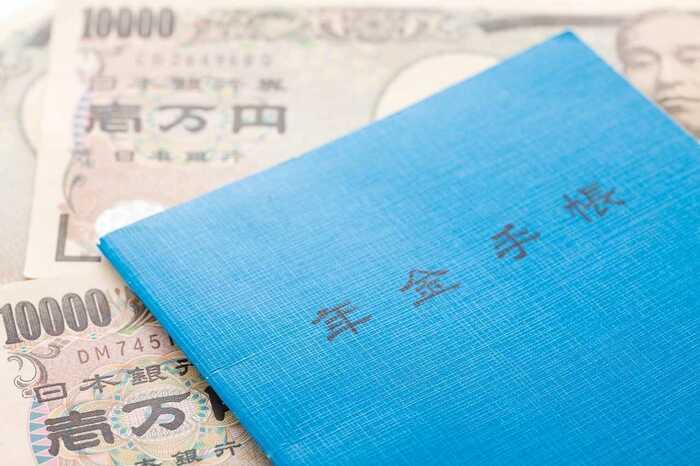 10000
日本銀行券
壱万円
日本銀行
年金手帳
10000
DM745
日本銀行
壱万円